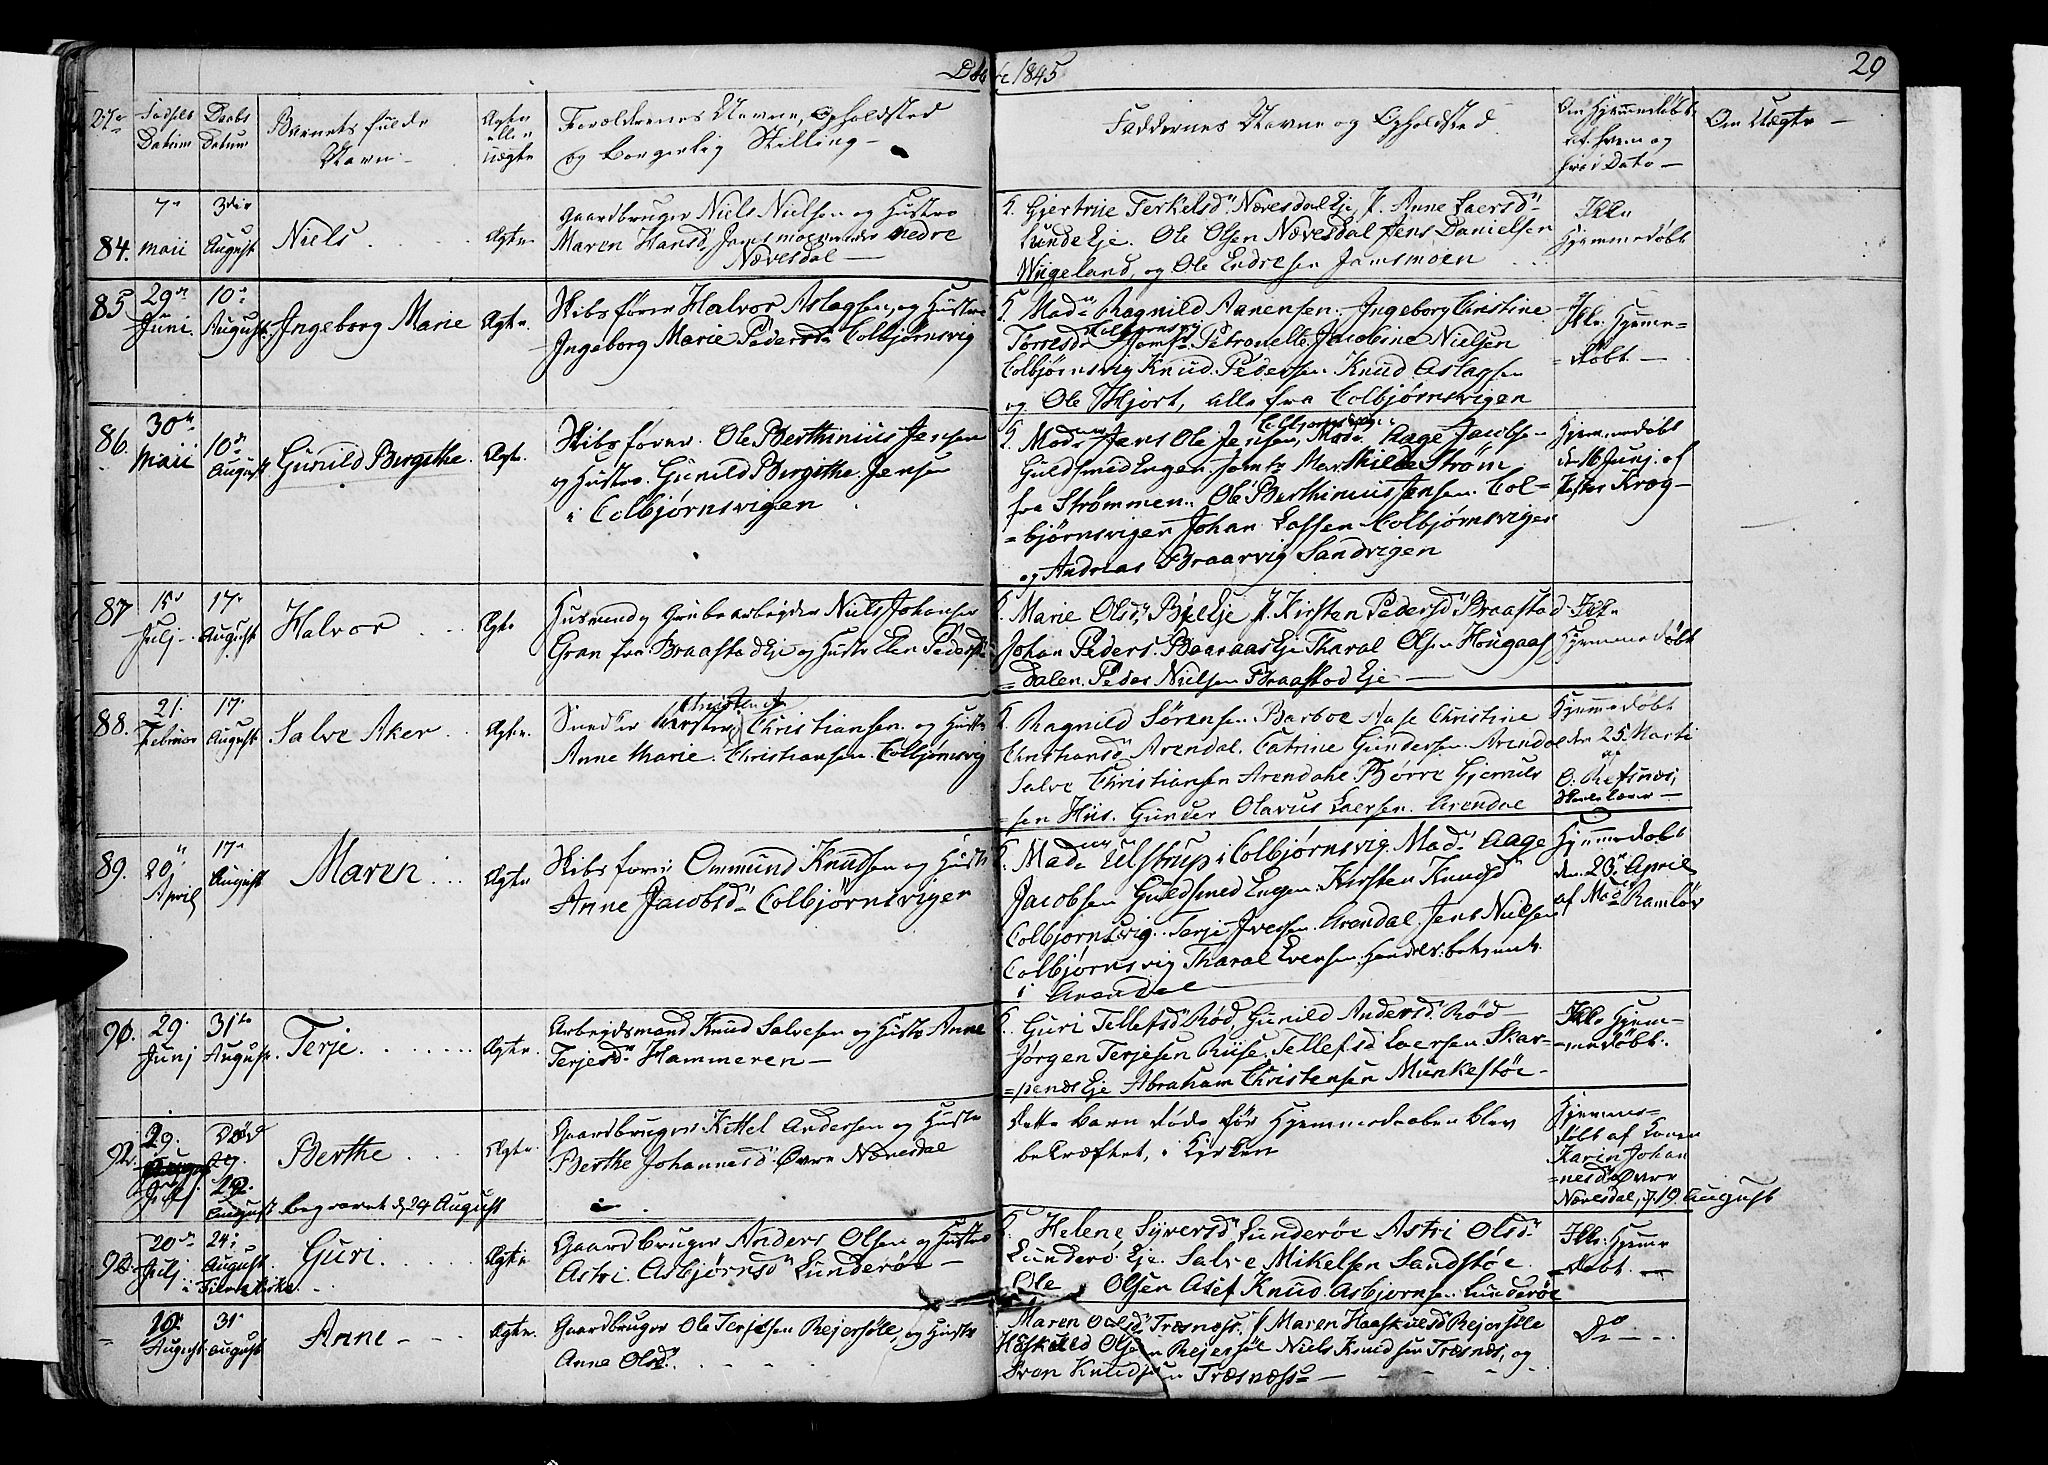 Døbte 1845
29
No
Fødsels Datum
Daabs Datum
Barnets fulde Navn
Ægte eller uægte
Forældrenes Navne, Opholdsted
og borgerlig Stilling
Faddernes Navne og Opholdsted
Om Hjemmedøbt
af hvem og
hvis Dato
Om Uægte
84. 7de Maii
3die August
Niels
Ægte
Gaardbruger Niels Nielsen og Hustro
Maren Hansd. nedre
Nævesdal
Gjertrue Terkelsd. Nævesdal Eje, J. Anne Laersd.
Lunde Eje. Ole Olsen Nævesdal Jens Danielsen
Wiigeland, og Ole Endresen Jomsmoen
Ikke
Hjemmedøbt
85 29de Juni
10de August
Ingeborg Marie
Ægte
Skibsfører Halvor Aslagsen, og Hustro
Ingeborg Marie Pedersd. Colbjørnsvig
Mad. Ragnild Aanensen. Ingeborg Christine
Torresd. Colbjørnsvig Jomf. Petronelle Jacobine Nielsen
Colbjørnsvig Knud Pedersen. Knud Aslagsen
og Ole Hjort, alle fra Colbjørnsvigen
Ikke Hjemme=
=døbt
86. 30te Maii
10de August
Gunild Birgithe
Ægte
Skibsfører. Ole Berthinius Jensen
og Hustro. Gunild Birgithe Jensen
i Colbjørnsvigen
Mad. Jens Ole Jensen, Colbjørnsvig Mad. Aage Jacobsen
Guldsmed Engen. Jomfr. Mathilde Strøm
fra Strømmen. Ole Berthinius Jensen. Col=
=bjørnsvigen Johan Lassen Colbjørnsvigen
og Andreas Braarvig Sandvigen
Hjemmedøbt
den 16 Junj af
Præsten Krog
87 15de Julj
17de August
Halvor
Ægte
Husmand og Grubearbejder Niels Johansen
Gran fra Braastad Eje og Hustro Elen Pedersd.
Marie Olsd. Bjel Eje J. Kirsten Pedersd. Braastad
Johan Peders. Baaraas Eje Tharal Olsen Hougaas
=dalen. Peder Nielsen Braastad Eje
Ikke
Hjemmedøbt
88. 21. Februar
17. August
Salve Aker
Ægte
Christen A
Christiansen og Hustro
Anne Marie Christiansen Colbjørnsvig
Ragnild Sørensen Barboe Nase Christine
Christiansd. Arendal. Catrine Gundersen Arendal
Salve Christiansen Arendahl Børre Gjeruls
sen Hiis. Gunder Olavus Laersen. Arendal
Hjemmedøbt
den 25 Marti
af
89. 20de April
17de August
Maren
Ægte
Skibsfører Ommund Knudsen og Hustro
Anne Jacobsd. Colbjørnsvigen
Mad. Ulstrup i Colbjørnsvig. Mad. Aage
Jacobsen Guldsmed Engen. Kirsten Knudsd.
Colbjørnsvig. Terje Iversen Arendal. Jens Nielsen
Colbjørnsvig Tharal Evensen Handelsbetjent
i Arendal
Hjemmedøbt
den 23de April
af Mad. Ramløv
90. 29. Junj
31te August
Terje
Ægte
Arbejdsmand Knud Salvesen og Hustro Anne
Terjesd. Hammeren
Guri Tellefsd. Rød, Gunild Andersd. Rød
Jørgen Terjesen Riise. Tellef Laersen Skar=
=penæs Eje Abraham Christensen Munkestøe
Ikke Hjem=
=medøbt.
92. 29. Julj
Død
19. August
Berthe
begravet d. 24 August
Ægte
Gaardbruger Kittel Andersen og Hustro
Berthe Johannesd. Øvre Nævesdal
Dette Barn døde før Hjemmedaaben blev
bekræftet, i Kirken
Hjemme=
døbt af Konen
Karin Johan
=nesd. Øvre
Nævesdal, d. 19 August
92. 20de Julj
24. August
i
Guri
Ægte
Gaardbruger Anders Olsen og Hustro
Astri Asbjørnsd. Lunderøe
Helene Syversd. Lunderøe Astri Olsd.
Lunderø Eje. Salve Mikelsen Sandstøe
Ole Olsen Asef Knud Asbjornsen Lunderøe
Ikke Hjemme
=døbt
10de August
31 august
Anne
Ægte.
Gaardbruger Ole Terjesen Rejersøle, og Hustro
Anne Olsd.
Maren Olsd. Træsnæss. J. Maren Haaskulsd. Rejersøle
Haskuld Olsen Rejersøl Niels Knudsen Træsnæs, og
Sven Knudsen Træsnæss
Do